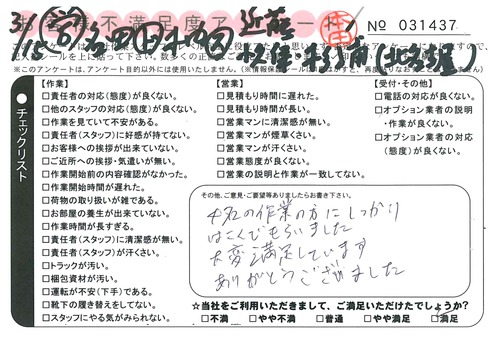 お客様不満足度アンケート
No 031437
近藤
(北名古屋)
※このアンケートは、アンケート目的以外には使用しておりません。
チェックリスト
【作業】
□責任者の対応(態度)が良くない。
□他のスタッフの対応(態度)が良くない。
□作業を見ていて不安がある。
□責任者(スタッフ)に好感が持てない。
□お客様への挨拶が出来ていない。
□ご近所への挨拶・気遣いが無い。
□作業開始前の内容確認がなかった。
□作業開始時間が遅れた。
□荷物の取り扱いが雑である。
□お部屋の養生が出来ていない。
□作業時間が長すぎる。
□責任者(スタッフ)に清潔感が無い。
□責任者(スタッフ)が汗くさい。
□トラックが汚い。
□梱包資材が汚い。
□運転が不安(下手)である。
□靴下の履き替えをしてない。
□スタッフにやる気がみられない。
【営業】
□見積もり時間に遅れた。
□見積もり時間が長い。
□営業マンに清潔感が無い。
□営業マンが煙草くさい。
□営業マンが汗くさい。
□営業態度が良くない。
□営業の説明と作業が一致してない。
【受付・その他】
□電話の対応が良くない。
□オプション業者の説明
・作業が良くない。
□オプション業者の対応
(態度)が良くない。
その他、ご意見・ご要望等ありましたらお書き下さい。
4名の作業の方にしっかり
はこんでもらいました
大変満足しています
ありがとうございました
☆当社をご利用いただきまして、ご満足いただけたでしょうか?
□不満 □やや不満 □普通 □やや満足 □満足